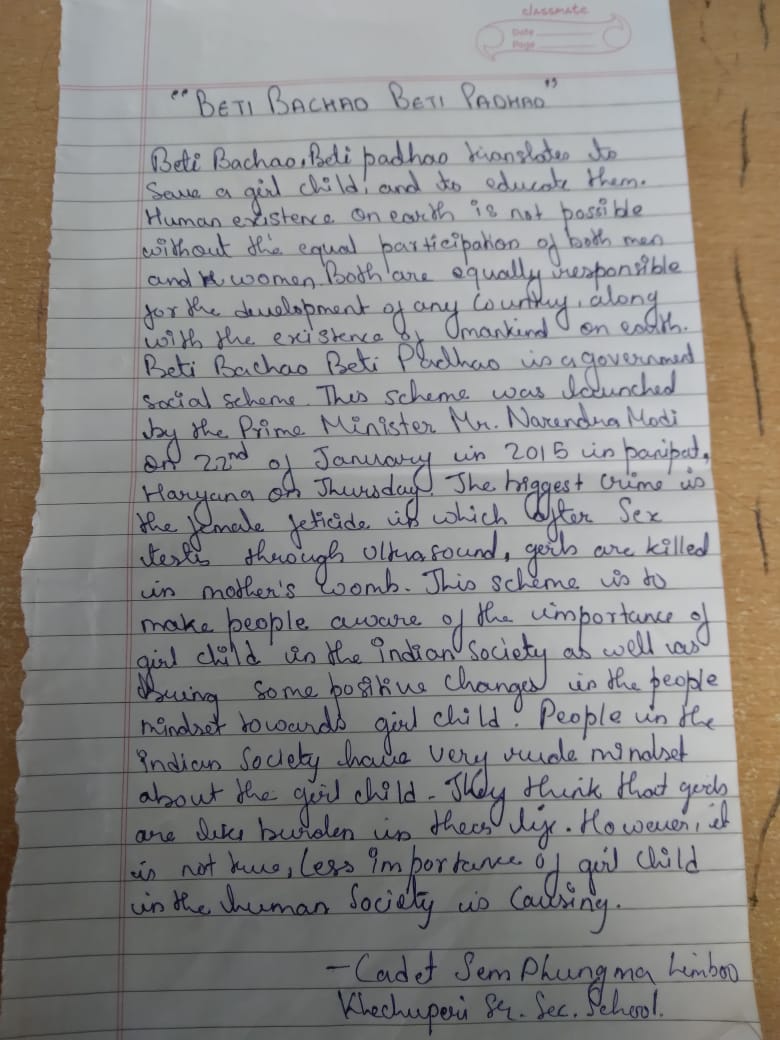 classmate
Date
Page
"BETI BACHAO BETI PADHAO"
Beti Bachao, Beti padhao translates to
Save a girl child, and to educate them.
Human existence on earth is not possible
without the equal participation of both men
and women. Both are equally responsible
for the development of any country, along
with the existence of mankind on earth.
Beti Bachao Beti Padhao is a government
social scheme. This scheme was launched
by the Prime Minister Mr. Narendra Modi
on 22nd of January in 2015 in panipat,
Haryana on Thursday. The biggest crime is
the female feticide in which after Sex
tests through ultrasound, girls are killed
in mother's womb. This scheme is to
make people aware of the importance of
girl child in the indian Society as well as
bring some positive changes in the people
mindset towards girl child. People in the
indian Society have very rude mindset
about the girl child. They think that girls
are like burden in their life. However, it
is not true, Less importance of girl child
in the human Society is Causing.
- Cadet Sem Phungma Limboo
Khechuperi Sr. Sec. School.